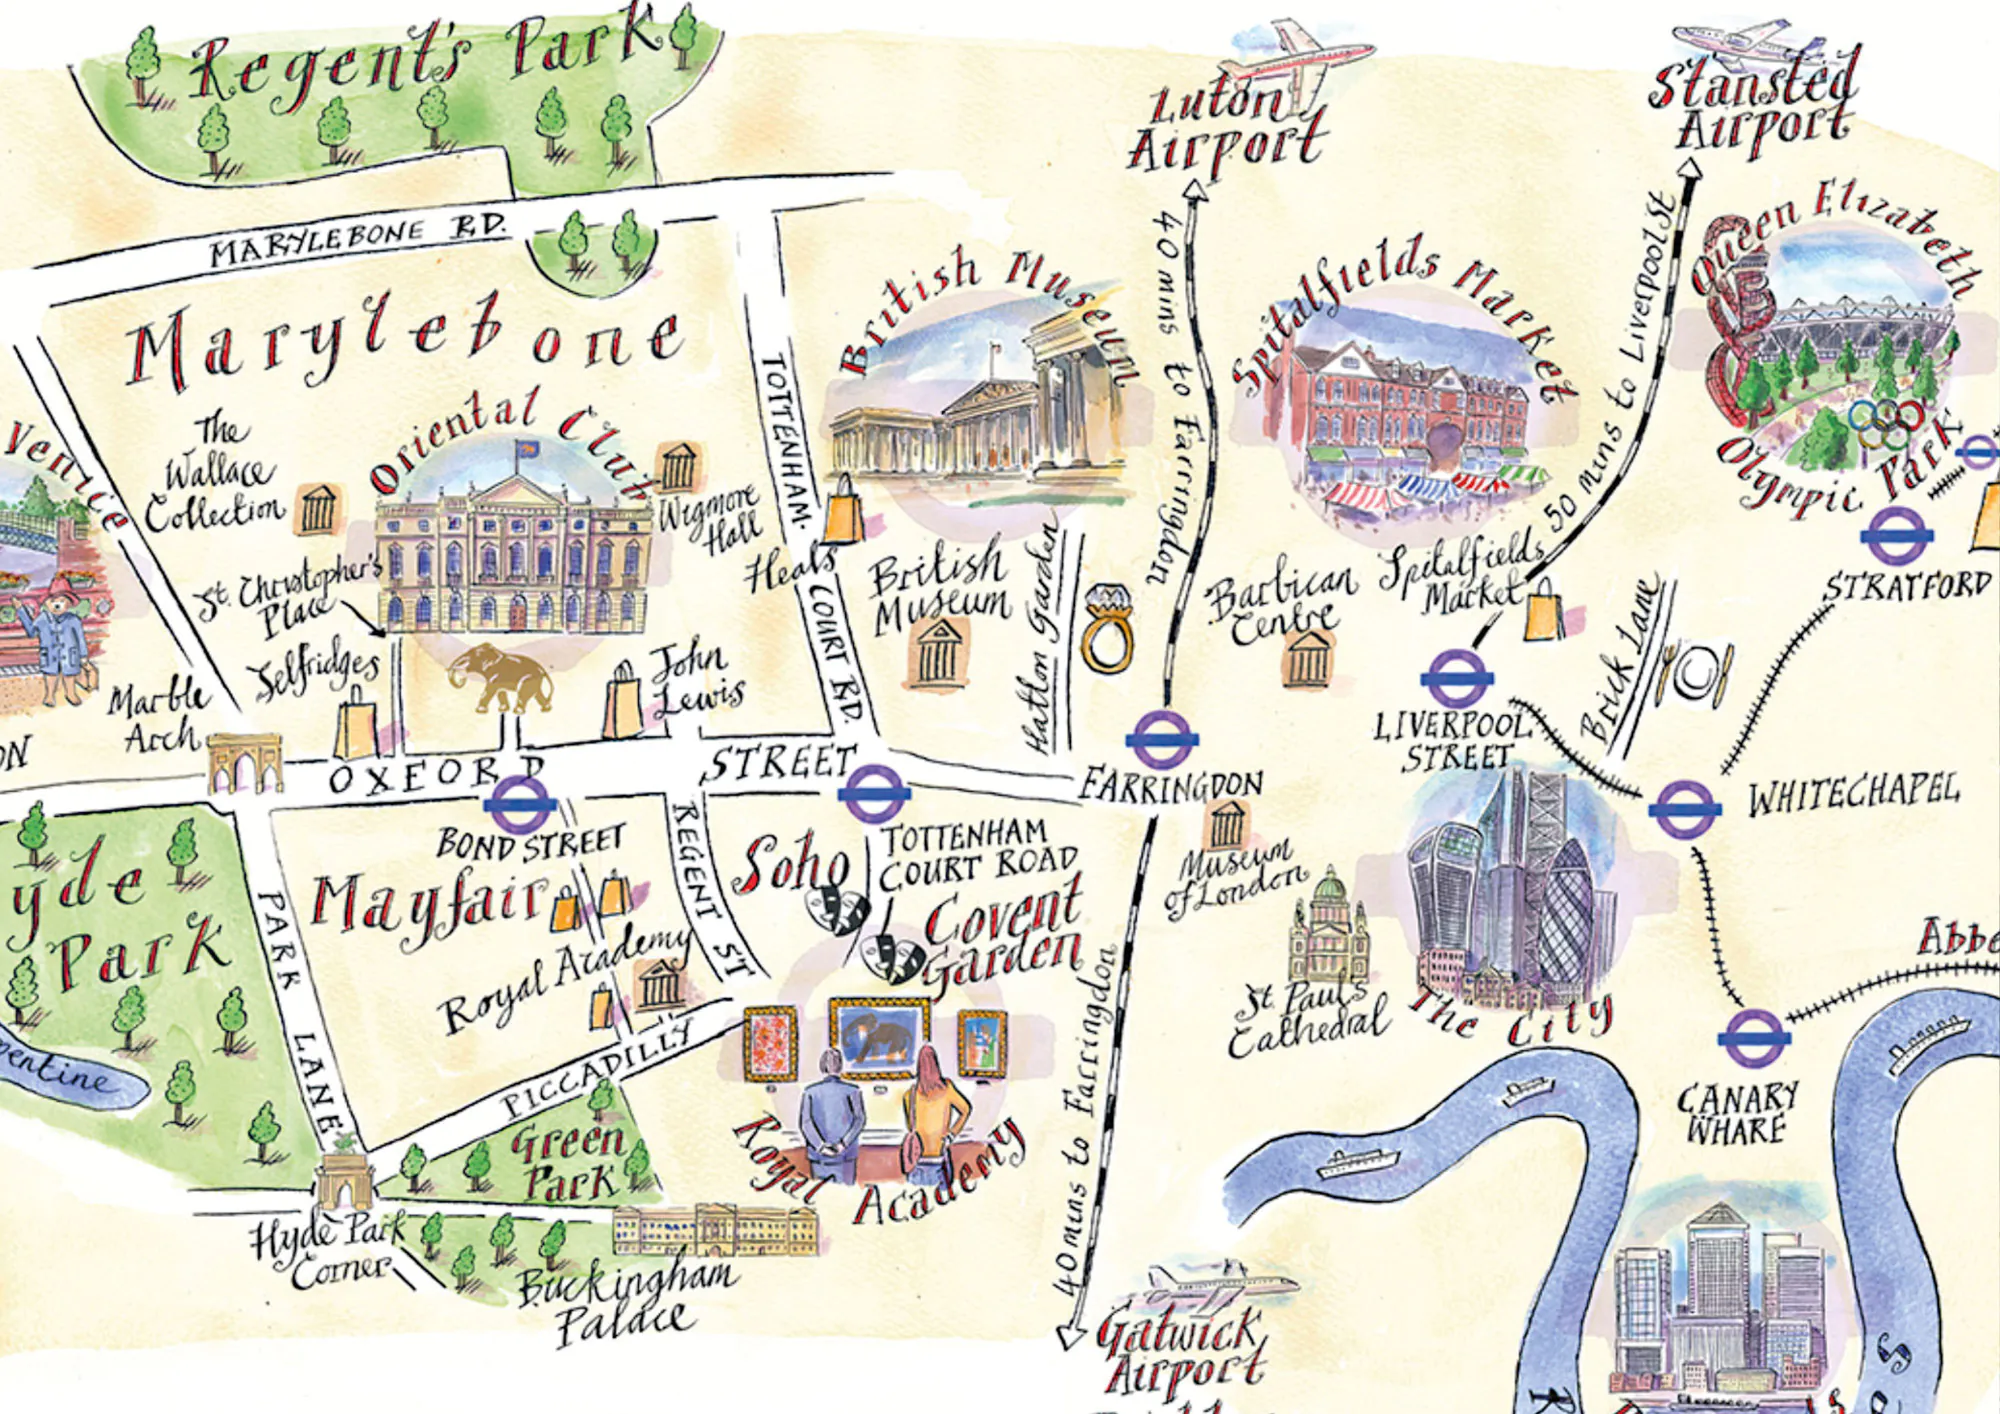 Regent's Park
Luton
Airport
Stansted
Airport
MARYLEBONE RD.
Marylebone
TOTTENHAM.
COURT RD.
British Museum
40 mins to Farringdon
Spitalfields Market
50 mins to Liverpool St
Queen Elizabeth
Olympic Park
Venice
The
Wallace
Collection
Oriental Club
Wigmore
Hall
Heals
British
Museum
Hatton Garden
Barbican
Centre
Spitalfields
Market
Brick Lane
STRATFORD
St. Christopher's
Place
Selfridges
John
Lewis
Marble
Arch
OXFORD STREET
BOND STREET
FARRINGDON
LIVERPOOL
STREET
WHITECHAPEL
TOTTENHAM
COURT ROAD
REGENT ST
Soho
Covent
Garden
Museum
of London
yde
Park
PARK LANE
Mayfair
Royal Academy
PICCADILLY
St. Paul's
Cathedral
The City
Abbe
CANARY
WHARF
entine
Green
Park
Royal Academy
40 mins to Farringdon
Hyde Park
Corner
Buckingham
Palace
Gatwick
Airport